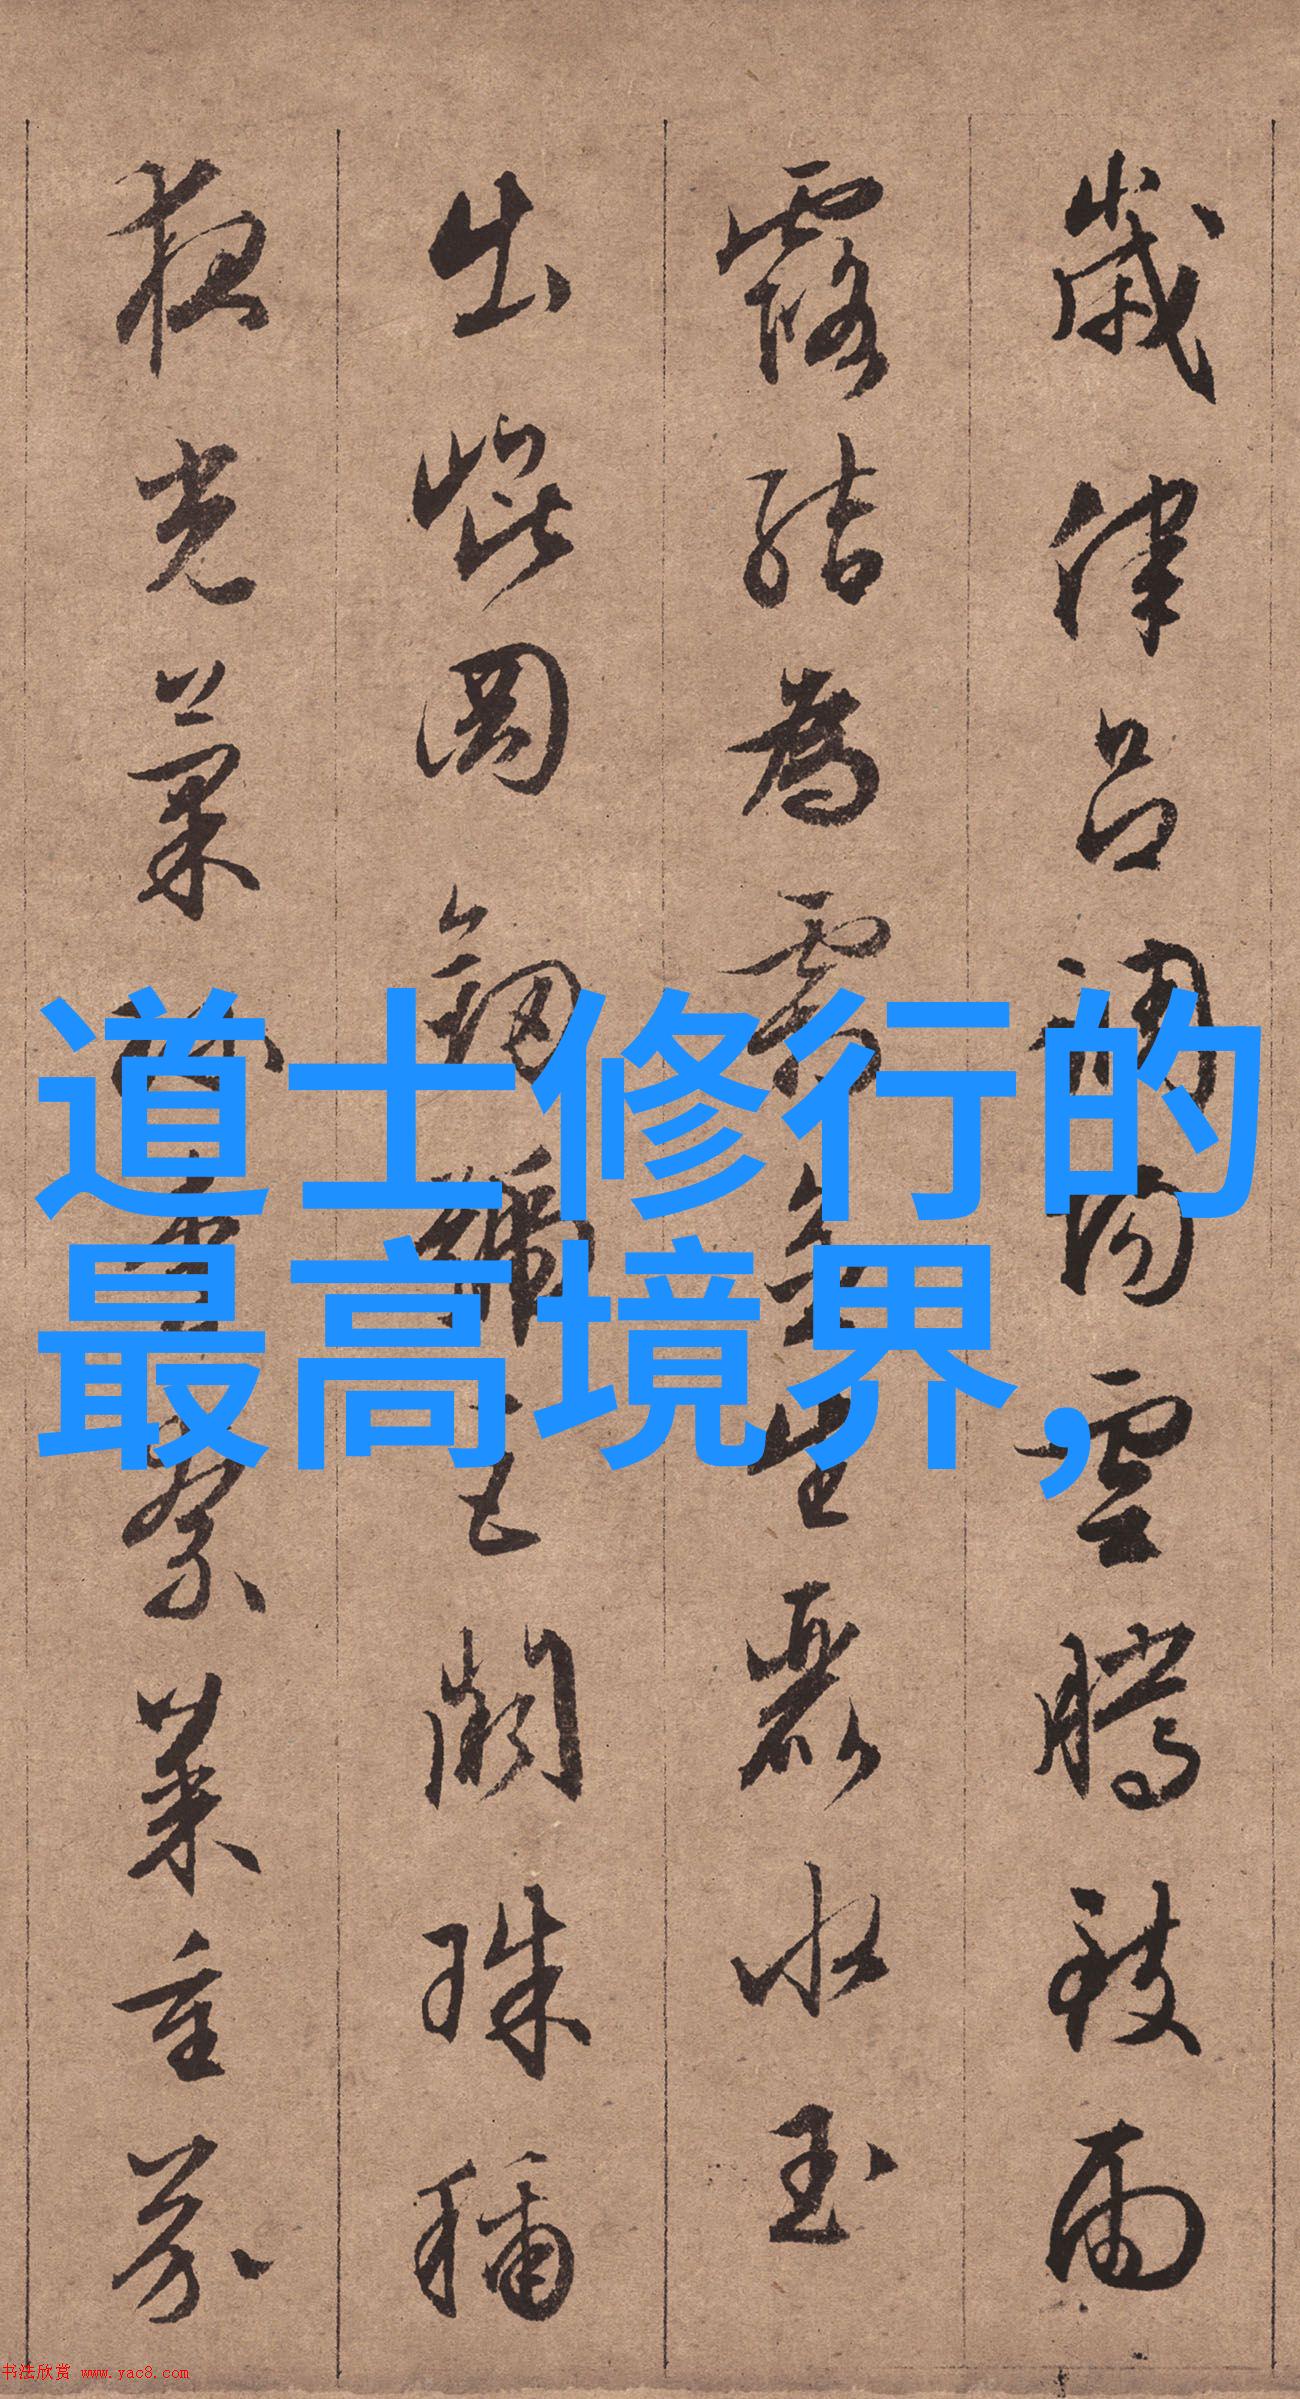 歲律呂調陽雲騰致雨
露結為霜金生麗水玉
出崐岡劒號巨闕珠稱
夜光菓珍李柰菜重芥
道士修行的
最高境界，
书法欣赏 www.yac8.com